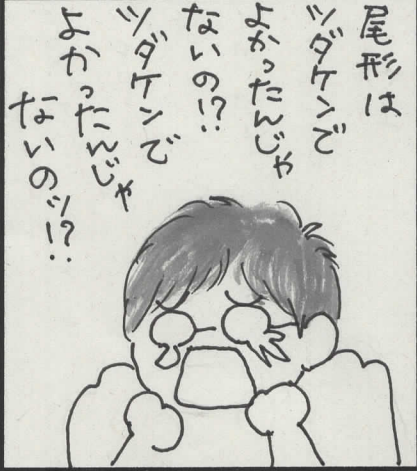 尾形は
ツダケンで
よかったんじゃ
ないの!?
ツダケンで
よかったんじゃ
ないのッ!?